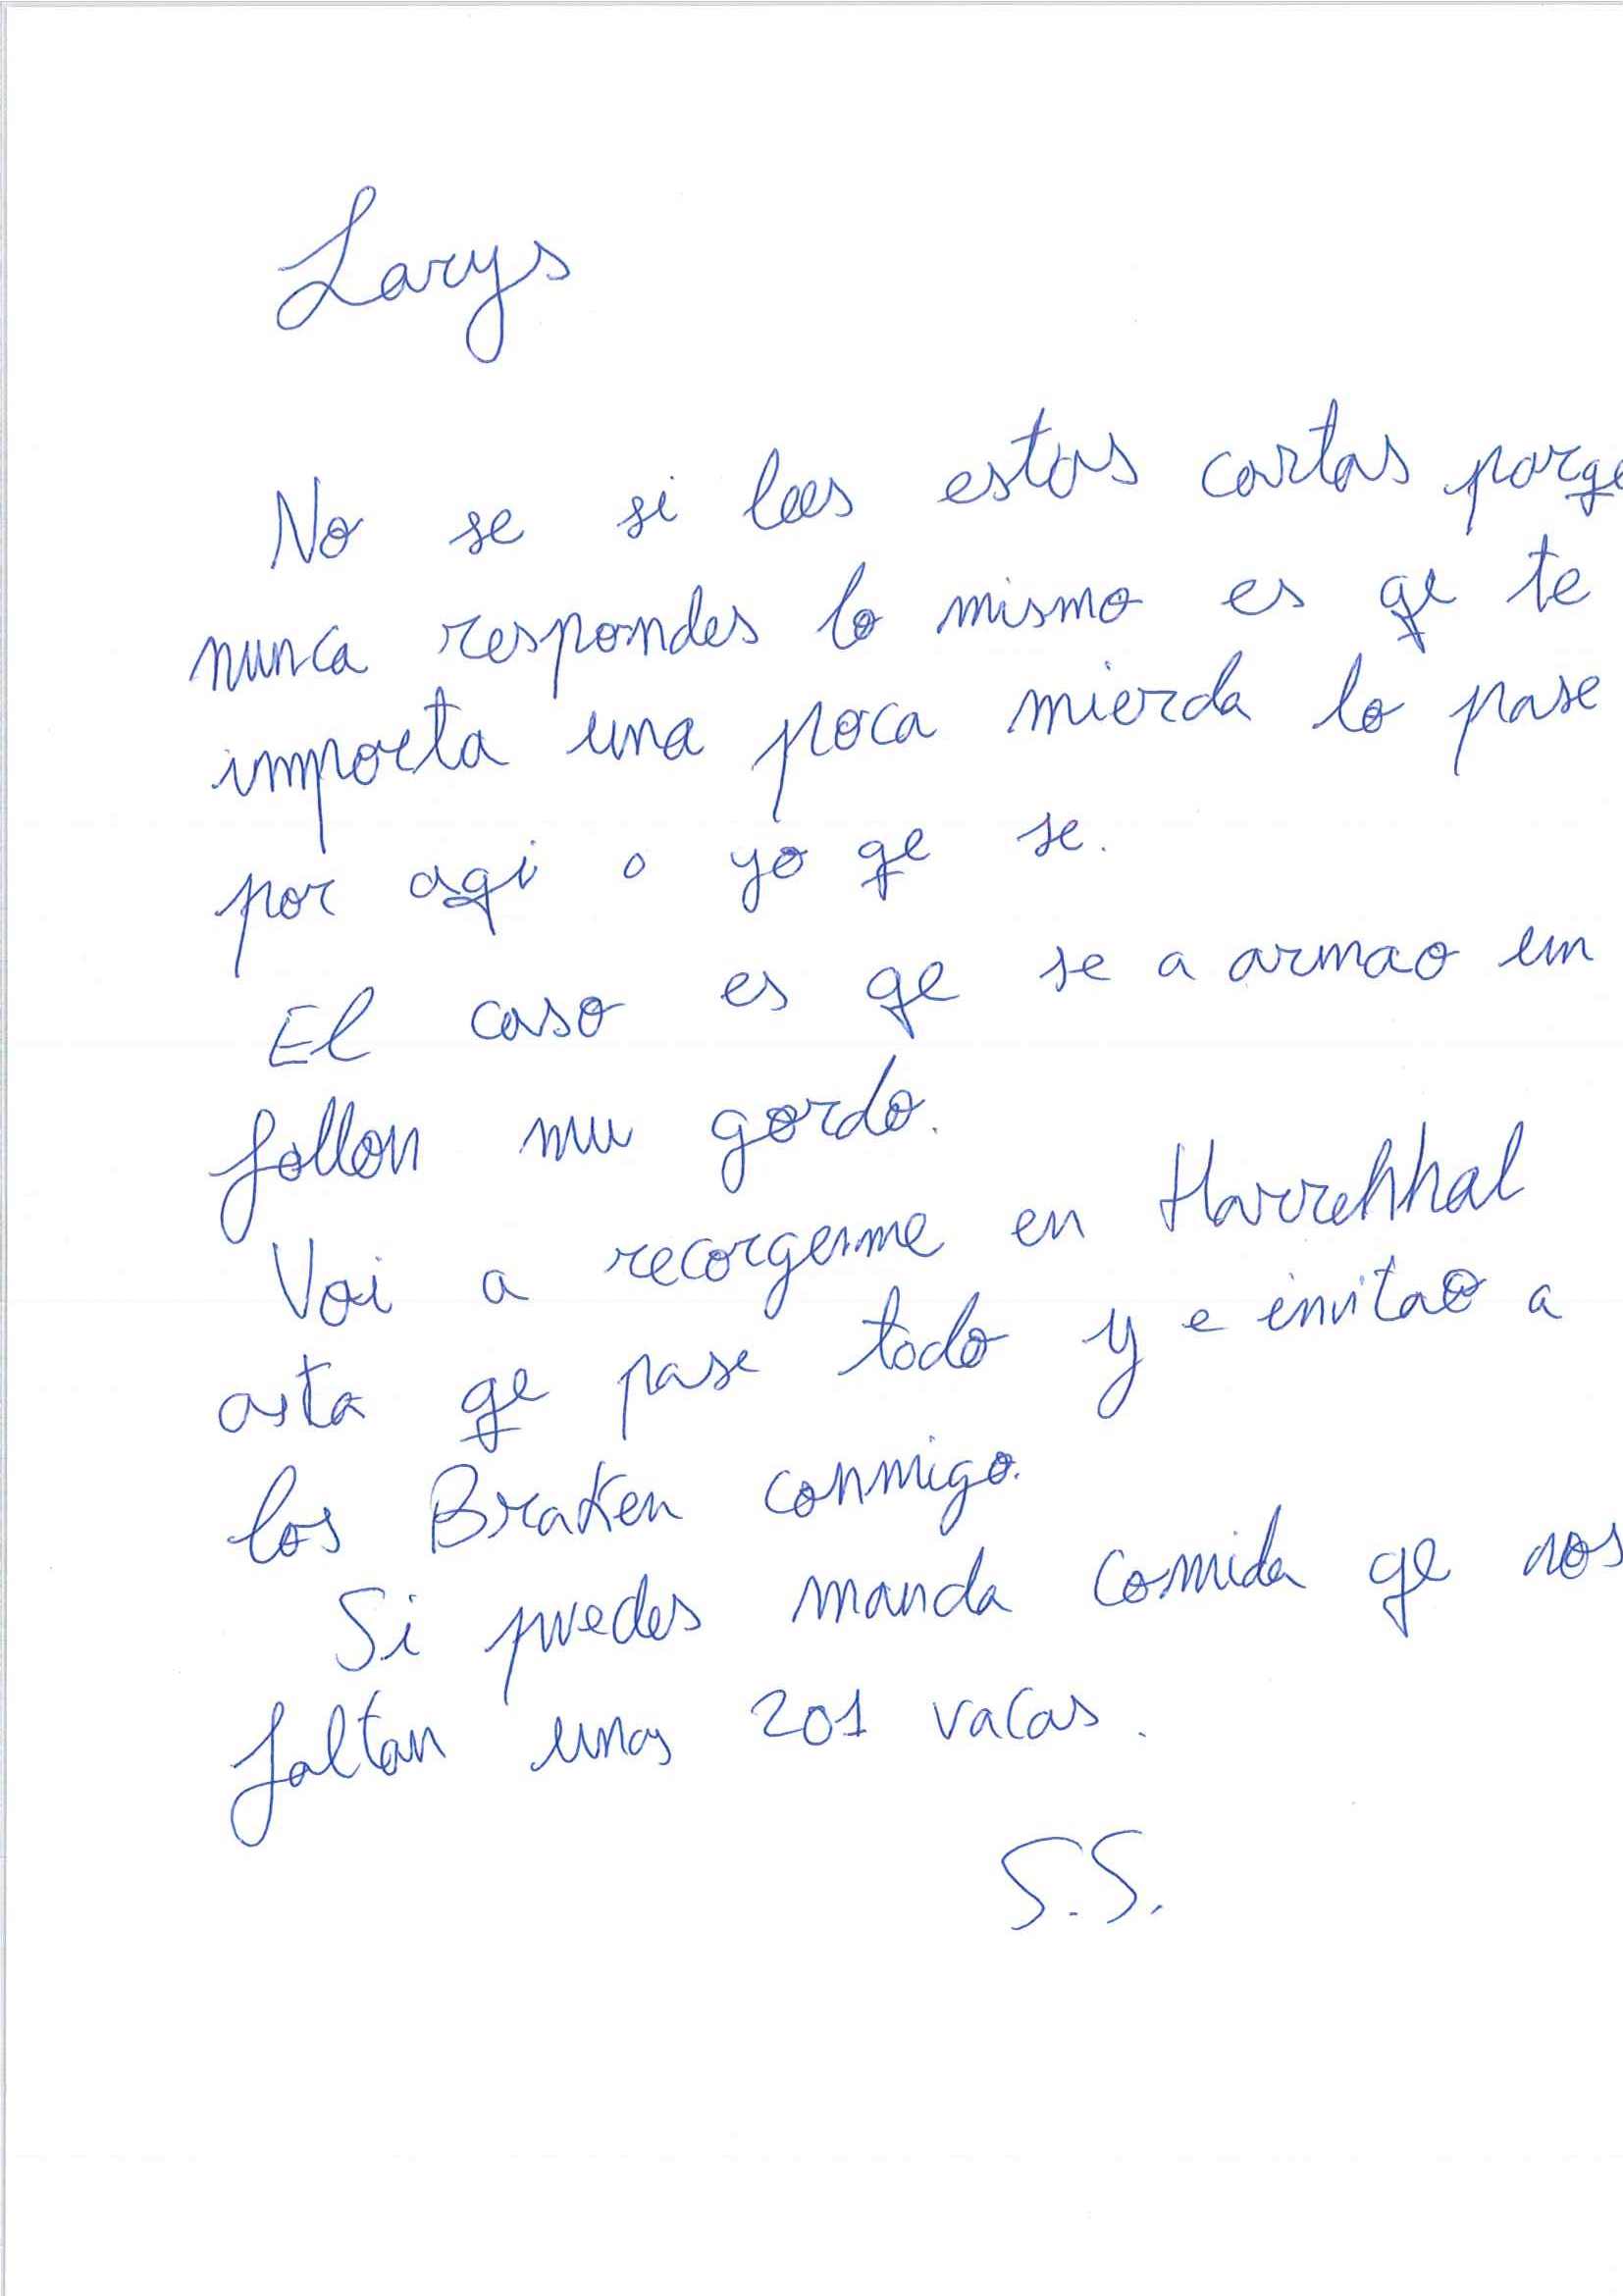 Larys
No se si lees estas cartas porge
nunca respondes lo mismo es ge te
importa una poca mierda lo pase
por agi o yo ge se.
El caso es ge se a armao un
follon mu gordo.
Voi a recorgerme en Harrehhal
asta ge pase todo y e invitao a
los Braken conmigo.
Si puedes manda comida ge nos
faltan unas 201 vacas.
S.S.